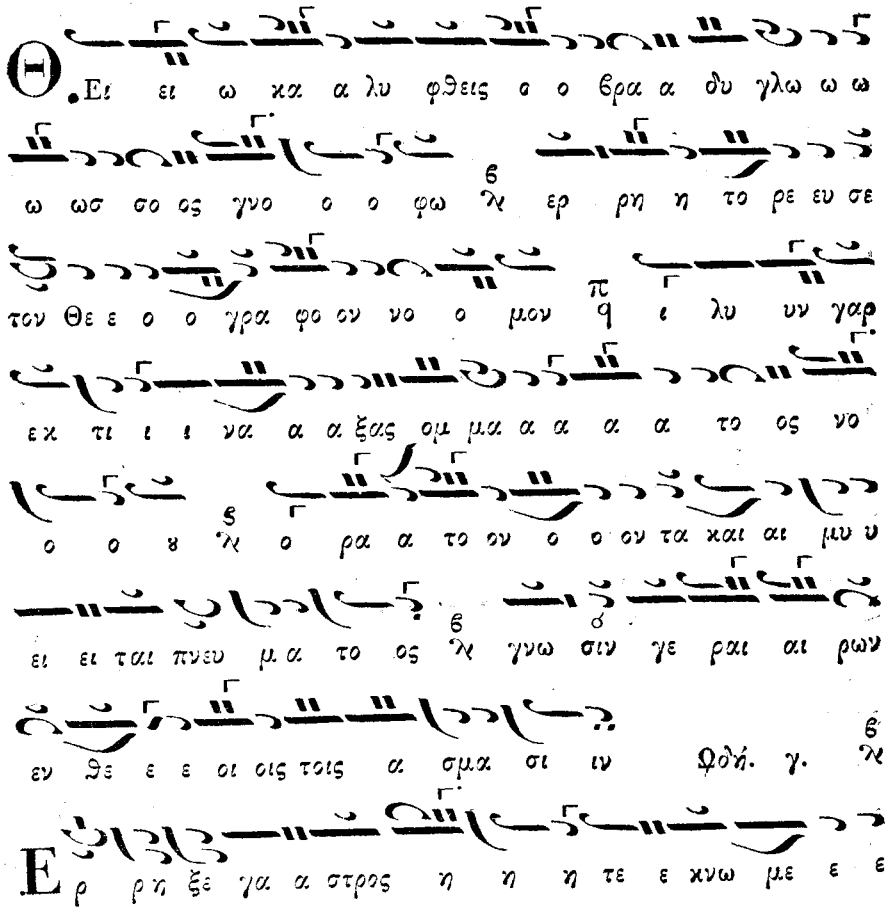 Θ.Ει ει ω κα α λυ φθεις ο ο βρα α δυ γλω ω ω
ω ωσ σο ος γνο ο ο φω ερ ρη η το ρε ευ σε
τον Θε ε ο ο γρα φο ον νο ο μον π q ι λυ υν γαρ
εκ τι ι ι να α α ξας ομ μα α α α α το ος νο
ο ο ȣ ο ρα α το ον ο ο ον τα και αι μυ υ
ει ει ται πνευ μα το ος γνω σιν γε ραι αι ρων
εν θε ε ε οι οις τοις α σμα σι ιν Ωδή. γ.
Ε ρ ρη ξε γα α στρος η η η τε ε κνω με ε ε